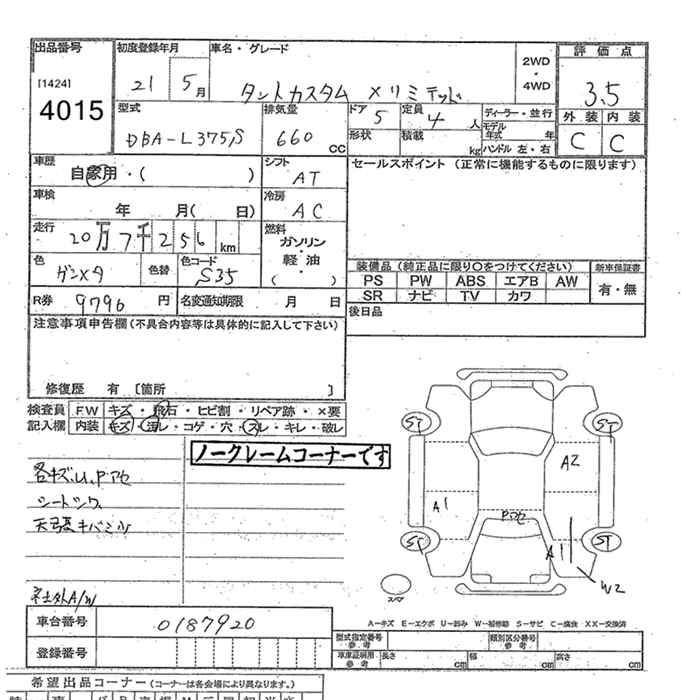 出品番号 初度登録年月 車名・グレード 評価点
[1424]
4015
21 5月
タントカスタム Xリミテッド
2WD
・
4WD
3.5
型式 排気量 ドア 定員 ディーラー・並行 外装 内装
DBA-L375S 660 CC 5 4人
形状 積載 kg モデル年式 年
ハンドル 左・右
C C
車歴 シフト セールスポイント (正常に機能するものに限ります)
自家用・( ) AT
車検 冷房
年 月( 日) AC
走行 燃料
20万7千256 km ガソリン
・
軽油
( )
色 色替 色コード
ガンメタ S35
装備品 (純正品に限り○をつけてください) 新車保証書
PS PW ABS エアB AW 有・無
SR ナビ TV カワ
R券 9796 円 名変通知期限 月 日
後日品
注意事項申告欄(不具合内容等は具体的に記入して下さい)
修復歴 有 [箇所 ]
検査員 FW キズ・飛石・ヒビ割・リペア跡・×要
記入欄 内装 キズ・汚レ・コゲ・穴・スレ・キレ・破レ
ノークレームコーナーです
各キズ.U.Pアセ
シートシワ
社外A/W
A2
A1
Pアセ
A1
W2
スペア
A-キズ E-エクボ U-凹み W-補修跡 S-サビ C-腐食 XX-交換済
車台番号 0187920
登録番号
型式指定番号参考 類別区分番号参考
車庫証明用参考 長さ cm 幅 cm 高さ cm
希望出品コーナー (コーナーは各会場により異なります。)